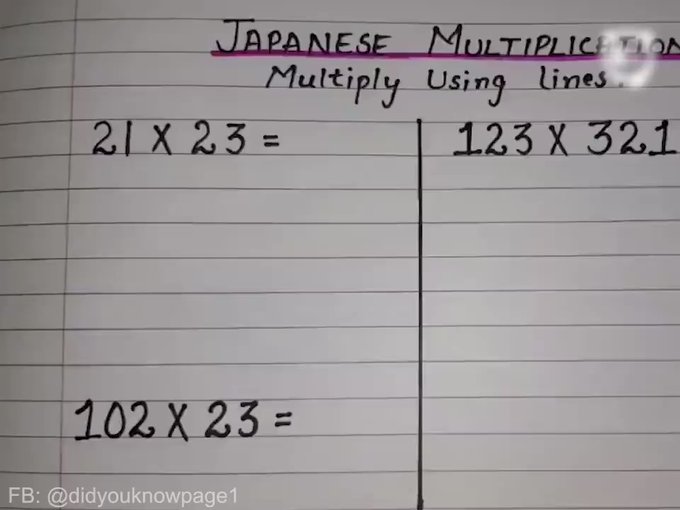 JAPANESE MULTIPLICATION
Multiply Using lines.
21 X 23 =
123 X 321
102 X 23 =
FB: @didyouknowpage1